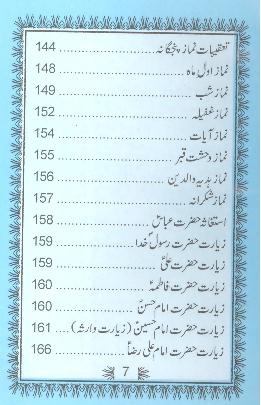 تعقیبات نماز پنجگانہ ........................ 144
نماز اول ماہ ........................ 148
نماز شب ........................ 149
نماز غفیلہ ........................ 152
نماز آیات ........................ 154
نماز وحشت قبر ........................ 155
نماز ہدیہ والدین ........................ 156
نماز شکرانہ ........................ 157
استغاثہ حضرت عباسؑ ........................ 158
زیارت حضرت رسولؐ خدا ........................ 159
زیارت حضرت علیؑ ........................ 159
زیارت حضرت فاطمہؑ ........................ 160
زیارت حضرت امام حسنؑ ........................ 160
زیارت حضرت امام حسینؑ (زیارت وارثہ) .... 161
زیارت حضرت امام علی رضاؑ ............ 166
7